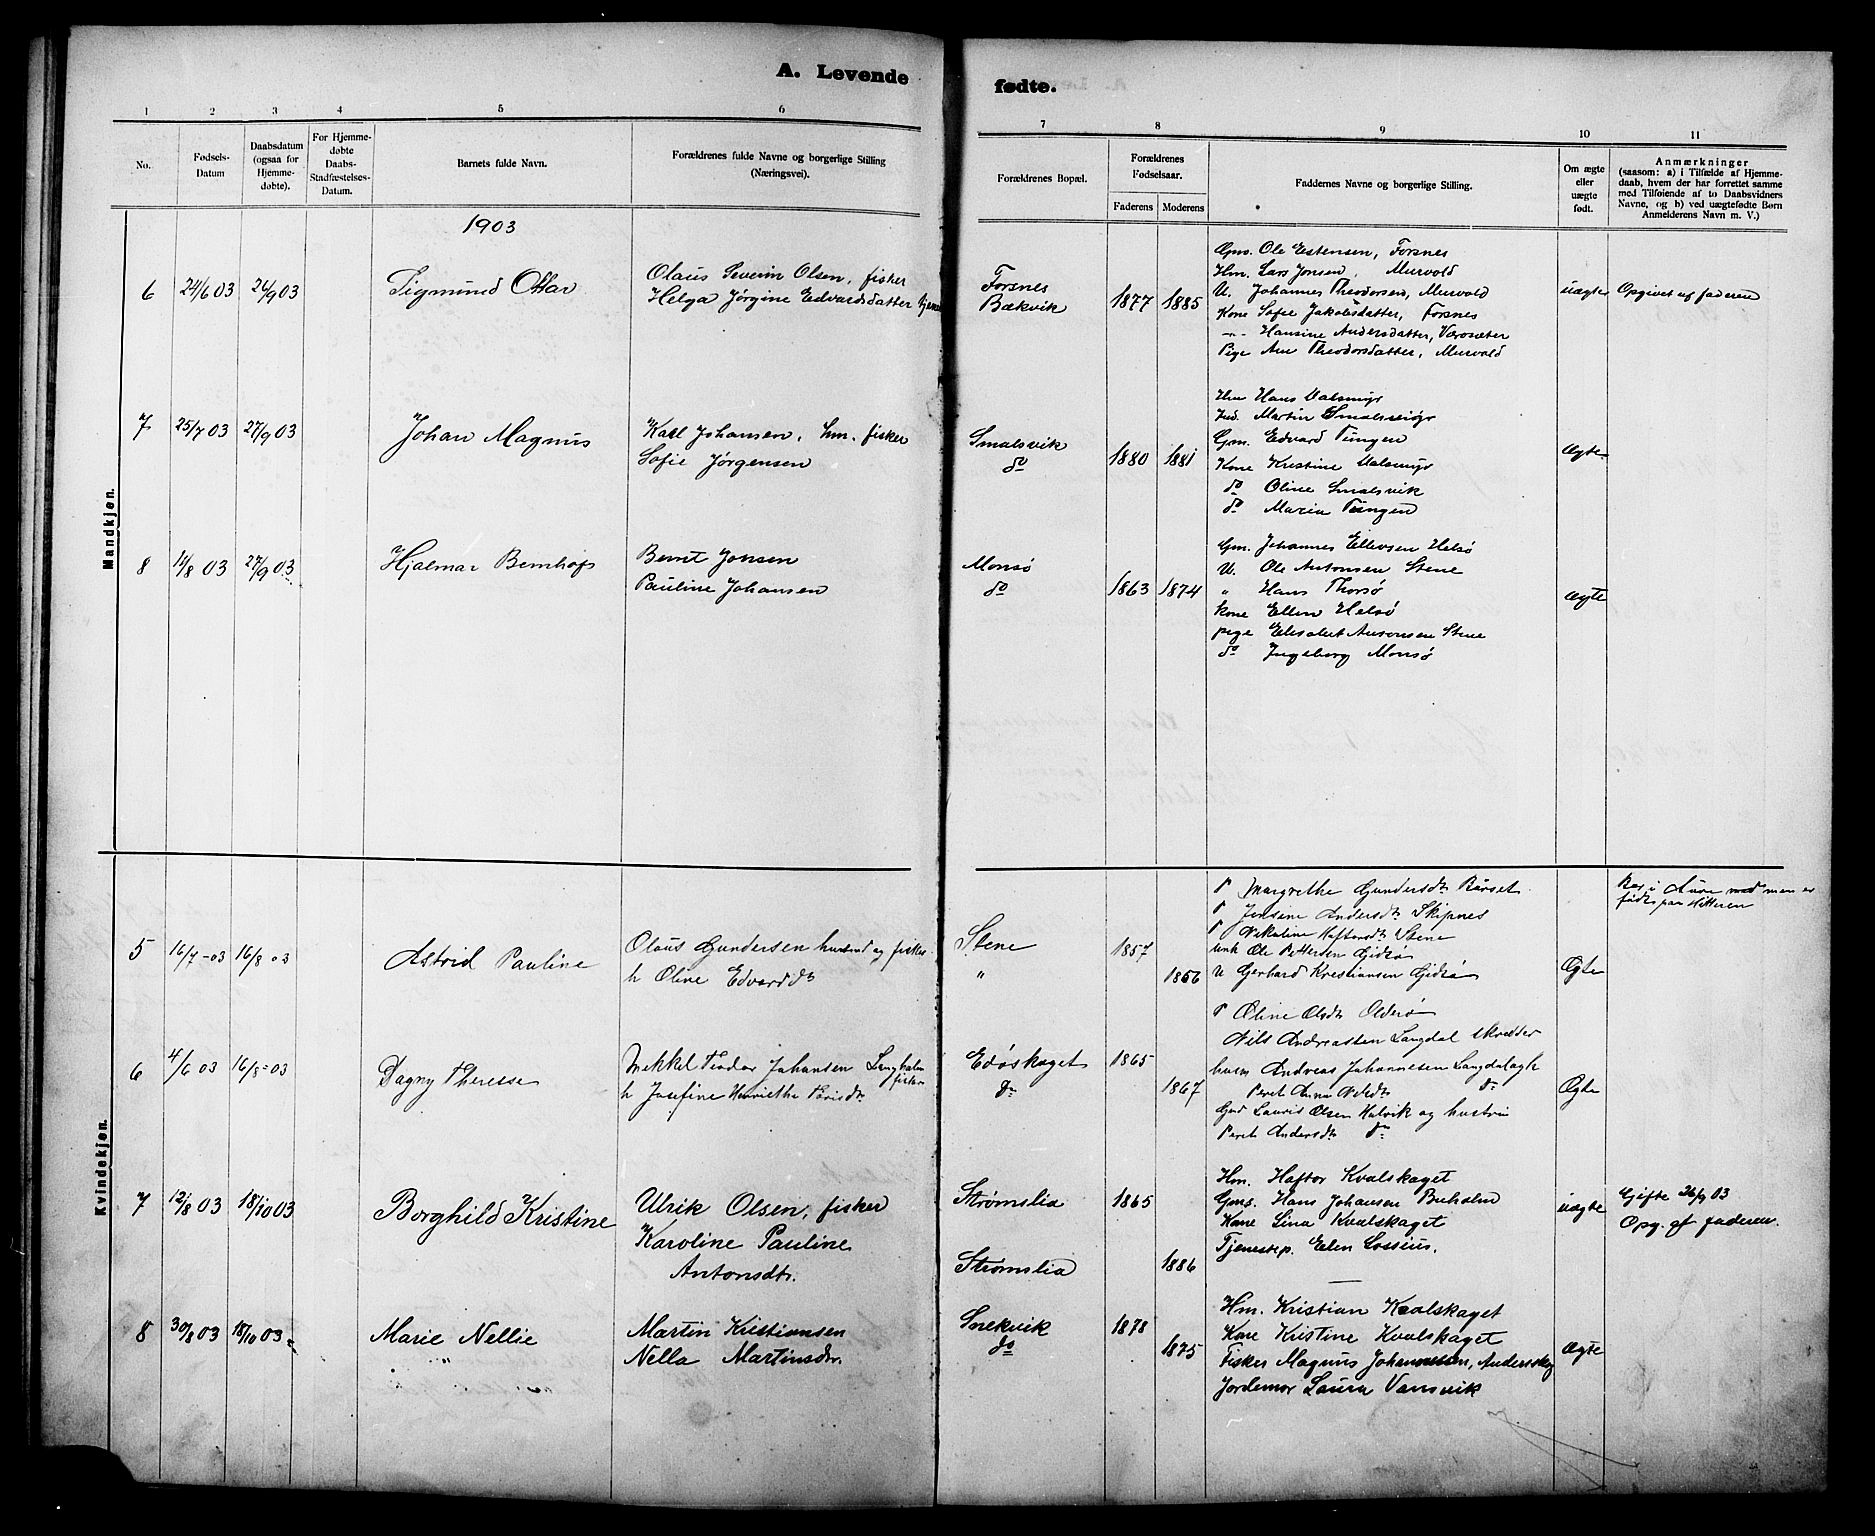 A. Levende fødte.
1 2 3 4 5 6 7 8 9 10 11
No.
Fødsels-
Datum
Daabsdatum
(ogsaa for
Hjemme-
døbte).
For Hjemme-
døbte
Daabs-
Stadfæstelses-
Datum.
Barnets fulde Navn.
Forældrenes fulde Navne og borgerlige Stilling
(Næringsvei).
Forældrenes Bopæl.
Forældrenes
Fødselsaar.
Faderens Moderens
Faddernes Navne og borgerlige Stilling.
Om ægte
eller
uægte
født.
Anmærkninger
(saasom: a) i Tilfælde af Hjemme-
daab, hvem der har forrettet samme
med Tilføiende af to Daabsvidners
Navne, og b) ved uægtefødte Børn
Anmelderens Navn m. V.)
Mandkjøn.
1903
6 24/6 03 26/9 03 Sigmund Ottar
Olaus Severin Olsen, fisker
Helga Jørgine Edvardsdatter
Forsnes
Bækvik
1877 1885
Gm. Ole Estensen, Forsnes
Hm. Lars Jonsen, Murvold
U. Johannes Theodorsen, Murvold
Kone Sofie Jakobsdatter, Forsnes
-"- Hansine Andersdatter, Værosæter
Pige Ane Theodorsdatter, Murvold
uægte Opgivet af faderen
7 25/7 03 27/9 03 Johan Magnus
Karl Johansen, hm. fisker
Sofie Jørgensen
Smalsvik
do
1880 1881
Hm Hans
Ind. Martin
Gm. Edvard Tungen
Kone Kristine
do Oline Smalsvik
do Maria Tungen
Ægte
8 14/8 03 27/9 03 Hjalmar Bernhof
Bernt Jonsen
Pauline Johansen
Monsø
do
1863 1874
Gm. Johannes Ellevsen Helsø
U. Ole Antonsen Stene
" Hans Thorsø
kone Ellen Helsø
pige Elisabet Antonsen Stene
do Ingeborg Monsø
Ægte
Kvindekjøn.
5 16/7 -03 16/8 03 Astrid Pauline
Olaus Gundersen husmd og fisker
h Oline Edvardsdt
Stene
"
1857
1856
P Margrethe Gundersdt
P Jensine Andersdt Skipnes
P Nikoline Haftorsdt Stene
unk Ole Pettersen Gjidsø
U Gerhard Kristiansen Gjidsø
Ægte
Bor i Aure men er
født paa Hitteren
6 4/6 03 16/8 =03 Dagny Therese
Mekkel Teodor Johansen Langholm
fisker
h Josefine Henriethe
Edøskaget
do
1865
1867
P Oline Olsdt Olderø
Nils Andreassen Langdal skrædder
husm Andreas Johannesen
Peret Anna Nilsdt do
Gmd Lauris Olsen Kalvik og hustru
Peret Andersdt do
Ægte
7 12/8 03 18/10 03 Borghild Kristine
Ulrik Olsen, fisker
Karoline Pauline
Antonsdtr.
Strømslia
Strømslia
1865
1886
Hm. Haftor Kvalskaget
Gms. Hans Johansen Buholm
Kone Lina Kvalskaget
Tjenestep. Elen Lossius.
uægte
Gifte 26/9 03
Opg. af faderen.
8 30/8 03 18/10 03 Marie Nellie
Martin Kristiansen
Nella Martinsdtr.
Snekvik
do
1878
1875
Hm. Kristian Kvalskaget
Kone Kristine Kvalskaget
Fisker Magnus Johannessen, Anderskog
Jordemor Laura Vansvik
Ægte